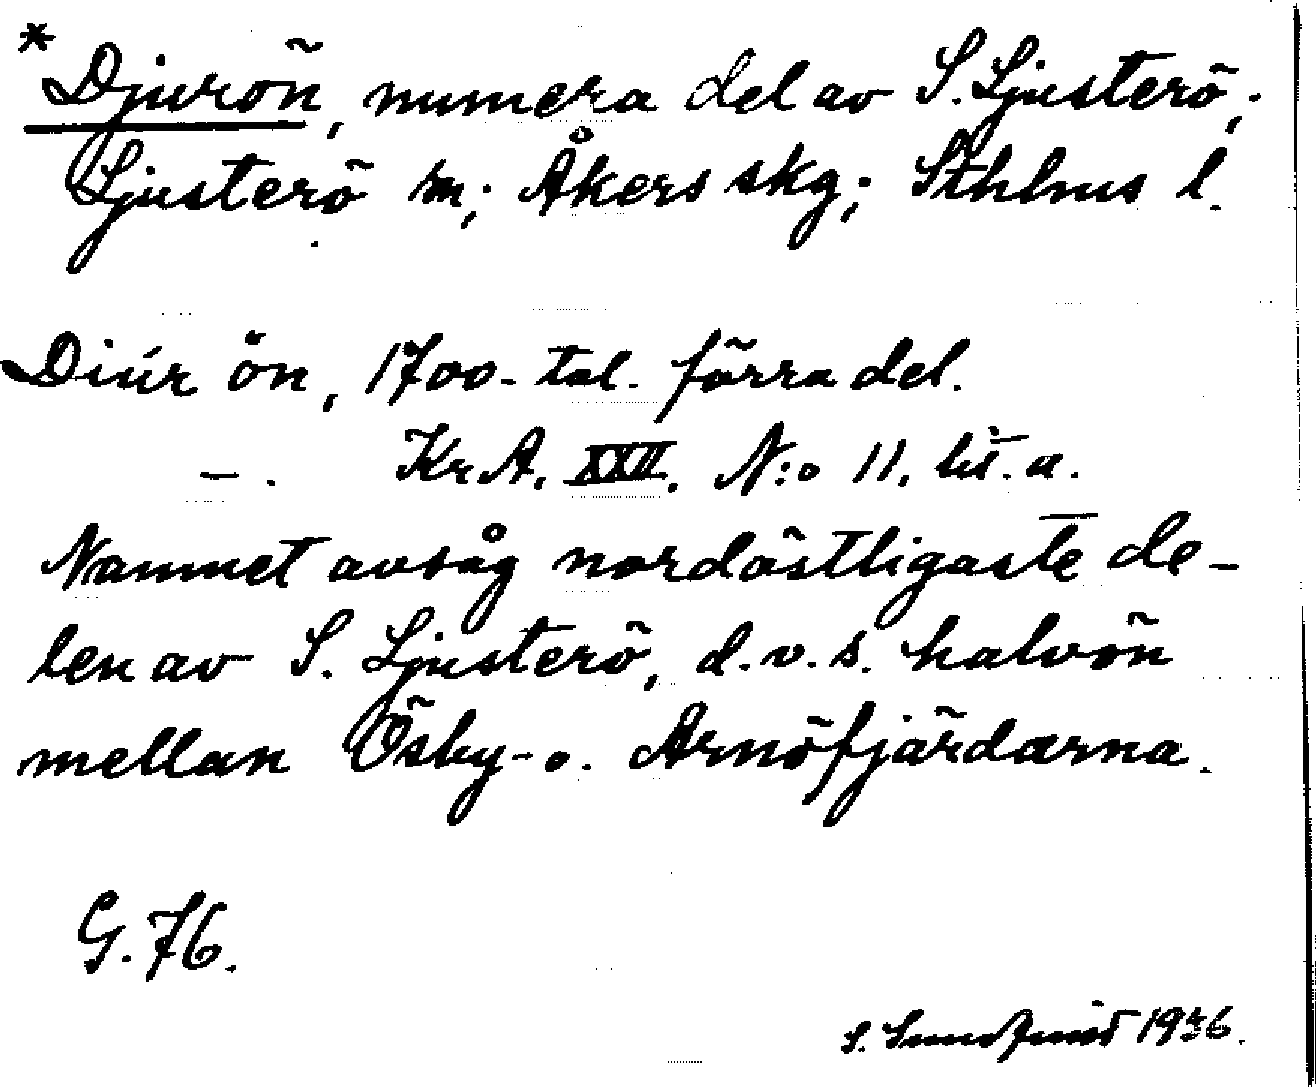 * Djurön, numera del av S. Ljusterö,
Ljusterö sn; Åkers skg; Sthlms l.
Diúr ön, 1700-tal. förra del.
— . Kr.A. XXII. N:o 11. lit. a.
Namnet avsåg nordöstligaste de-
len av S. Ljusterö, d.v.s. halvön
mellan Ösby- o. Arnöfjärdarna.
G. 76.
S. 1936.